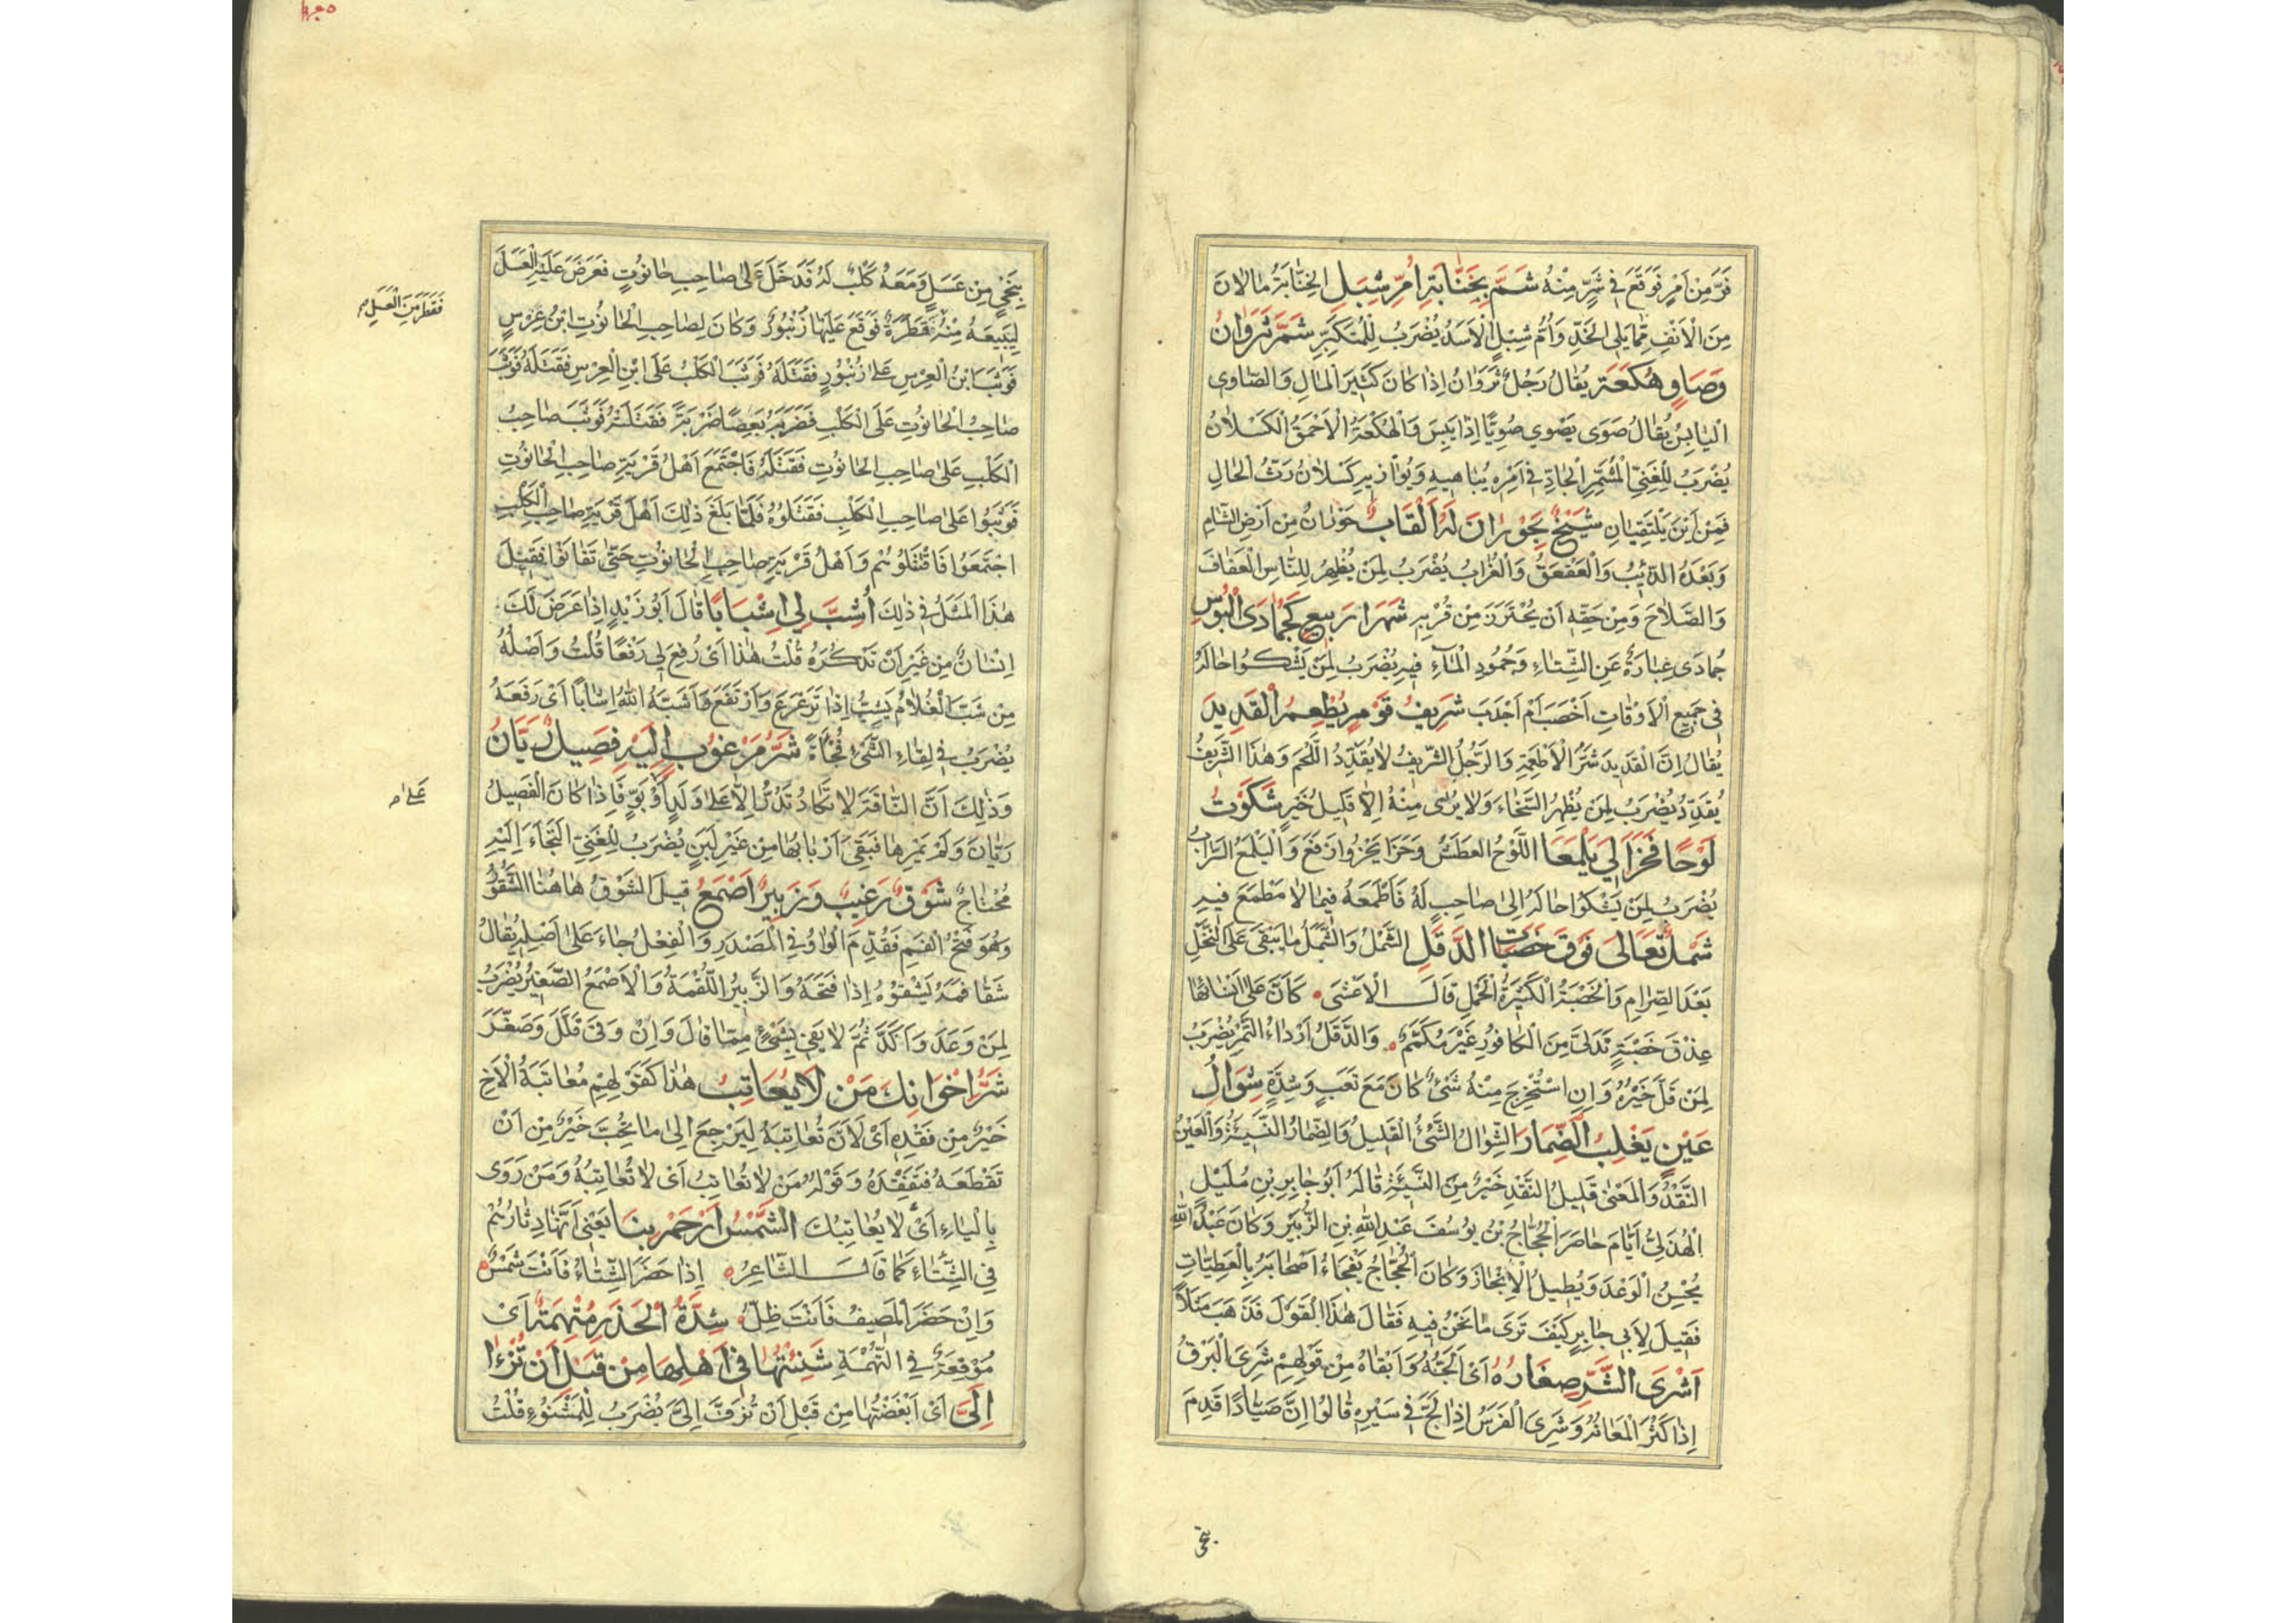 فَرَّ مِنْ اَمْرٍ فَوَقَعَ فِي شَرٍّ مِنْهُ شَمَّ بِخِنَّابَةِ اُمِّ شِبْلٍ الخِنَّابَةُ مَا لَانَ
مِنَ الْاَنْفِ مِمَّا يَلِي الخَدَّ وَاُمُّ شِبْلٍ الْاَسَدُ يُضْرَبُ لِلْمُتَكَبِّرِ شَمَّرَ ثَرْوَانُ
وَصَاوٍ هُكَعَةٌ يُقَالُ رَجُلٌ ثَرْوَانُ اِذَا كَانَ كَثِيرَ الْمَالِ وَالصَّاوِي
الْيَابِسُ يُقَالُ صَوَى يَصْوِي صُوِيًّا اِذَا يَبِسَ وَالْهُكَعَةُ الْاَحْمَقُ الْكَسْلَانُ
يُضْرَبُ لِلْغَنِيِّ الْمُشَمِّرِ الْجَادِّ فِي اَمْرِهِ يُبَاهِيهِ وَيُوَازِيهِ كَسْلَانُ رَثُّ الْحَالِ
فَمِنْ اَيْنَ يَلْتَقِيَانِ شَيْخٌ بِحَوْرَانَ لَهُ اَلْقَابٌ حَوْرَانُ مِنْ اَرْضِ الشَّامِ
وَبَعْدَهُ الذِّئْبُ وَالْعَقْعَقُ وَالْغُرَابُ يُضْرَبُ لِمَنْ يُظْهِرُ لِلنَّاسِ الْعَفَافَ
وَالصَّلَاحَ وَمِنْ حَقِّهِ اَنْ يُحْتَرَزَ مِنْ قُرْبِهِ شَهْرَا رَبِيعٍ كَجُمَادَى الْبُوْسِ
جُمَادَى عِبَارَةٌ عَنِ الشِّتَاءِ وَجُمُودِ الْمَآءِ فِيهِ يُضْرَبُ لِمَنْ يَشْكُوا حَالَهُ
فِي جَمِيعِ الْاَوْقَاتِ اَخْصَبَ اَمْ اَجْدَبَ شَرِيفُ قَوْمٍ يُطْعِمُ الْقَدِيدَ
يُقَالُ اِنَّ الْقَدِيدَ شَرُّ الْاَطْعِمَةِ وَالرَّجُلُ الشَّرِيفُ لَا يُقَدِّدُ اللَّحْمَ وَهٰذَا الشَّرِيفُ
يُقَدِّدُ يُضْرَبُ لِمَنْ يُظْهِرُ السَّخَاءَ وَلَا يُرَى مِنْهُ اِلَّا قَلِيلُ خَيْرٍ شَكَوْتُ
لَوْحًا فَحَزَا لِي يَلْمَعَا اللَّوْحُ العَطَشُ وَحَزَا يَحْزُوا رَفَعَ وَالْيَلْمَعُ السَّرَابُ
يُضْرَبُ لِمَنْ يَشْكُوا حَالَهُ اِلٰى صَاحِبٍ لَهُ فَاَطْمَعَهُ فِيمَا لَا مَطْمَعَ فِيهِ
شَمْلٌ تَعَالَى فَوْقَ خَصْبَاتِ الدَّقَلِ الشَّمْلُ وَالشَّمَلُ مَا يَبْقَى عَلَى النَّخْلِ
بَعْدَ الصِّرَامِ وَالْخَصْبَةُ الْكَثِيرَةُ الْحَمْلِ قَالَ الْاَعْشَى كَاَنَّ عَلَى اَنْسَائِهَا
عِذْقَ خَصْبَةٍ تَدَلَّى مِنَ الْكَافُورِ غَيْرَ مُكَمَّمٍ وَالدَّقَلُ اَرْدَاُ التَّمْرِ يُضْرَبُ
لِمَنْ قَلَّ خَيْرُهُ وَاِنِ اسْتُخْرِجَ مِنْهُ شَيْءٌ كَانَ مَعَ تَعَبٍ وَشِدَّةٍ شِوَالُ
عَيْنٍ يَغْلِبُ الضِّمَارَ الشِّوَالُ الشَّيْءُ الْقَلِيلُ وَالضِّمَارُ النَّسِيئَةُ وَالْعَيْنُ
النَّقْدُ وَالْمَعْنٰى قَلِيلُ النَّقْدِ خَيْرٌ مِنَ النَّسِيئَةِ قَالَهُ اَبُو جَابِرِ بْنِ مُلَيْلٍ
الْهُذَلِيُّ اَيَّامَ حَاصَرَ الْحَجَّاجُ بْنُ يُوسُفَ عَبْدَ اللّٰهِ بْنِ الزُّبَيْرِ وَكَانَ عَبْدُ اللّٰهِ
يُحْسِنُ الْوَعْدَ وَيُطِيلُ الْاِنْجَازَ وَكَانَ الْحَجَّاجُ يَفْجَاءُ اَصْحَابَهُ بِالْعَطِيَّاتِ
فَقِيلَ لِاَبِي جَابِرٍ كَيْفَ تَرَى مَا نَحْنُ فِيهِ فَقَالَ هٰذَا الْقَوْلَ فَذَهَبَ مَثَلًا
اَشْرَى الشَّرِّ صِغَارُهُ اَىْ اَلَجُّهُ وَاَبْقَاهُ مِنْ قَوْلِهِمْ شَرِىَ الْبَرْقُ
اِذَا كَثُرَ لَمَعَانُهُ وَشَرِىَ الْفَرَسُ اِذَا لَجَّ فِي سَيْرِهِ قَالُوا اِنَّ صَيَّادًا قَدِمَ
بِنِحْيٍ
بِنِحْيٍ مِنْ عَسَلٍ وَمَعَهُ كَلْبٌ لَهُ فَدَخَلَ عَلٰى صَاحِبِ حَانُوتٍ فَعَرَضَ عَلَيْهِ الْعَسَلَ
لِيَبِيعَهُ مِنْهُ قَطْرَةٌ فَوَقَعَ عَلَيْهَا زُنْبُورٌ وَكَانَ لِصَاحِبِ الْحَانُوتِ ابْنُ عِرْسٍ
فَقَطَرَ مِنَ الْعَسَلِ م
فَوَثَبَ ابْنُ الْعِرْسِ عَلٰى زُنْبُورٍ فَقَتَلَهُ فَوَثَبَ الْكَلْبُ عَلَى ابْنِ الْعِرْسِ فَقَتَلَهُ فَوَثَبَ
صَاحِبُ الْحَانُوتِ عَلَى الْكَلْبِ فَضَرَبَهُ بِعَصًا ضَرْبَةً فَقَتَلَتْهُ فَوَثَبَ صَاحِبُ
الْكَلْبِ عَلٰى صَاحِبِ الْحَانُوتِ فَقَتَلَهُ فَاجْتَمَعَ اَهْلُ قَرْيَةِ صَاحِبِ الْحَانُوتِ
فَوَثَبُوا عَلٰى صَاحِبِ الْكَلْبِ فَقَتَلُوهُ فَلَمَّا بَلَغَ ذٰلِكَ اَهْلَ قَرْيَةِ صَاحِبِ الْكَلْبِ
اجْتَمَعُوا فَاقْتَتَلُوا هُمْ وَاَهْلُ قَرْيَةِ صَاحِبِ الْحَانُوتِ حَتّٰى تَفَانَوْا فَقِيلَ
هٰذَا الْمَثَلُ فِي ذٰلِكَ اُشِبَّ لِي اِشْبَابًا قَالَ اَبُو زَيْدٍ اِذَا عَرَضَ لَكَ
اِنْسَانٌ مِنْ غَيْرِ اَنْ تَذْكُرَهُ قُلْتُ هٰذَا اَىْ رُفِعَ لِي رَفْعًا قُلْتُ وَاَصْلُهُ
مِنْ شَبَّ الْغُلَامُ يَشِبُّ اِذَا تَرَعْرَعَ وَارْتَفَعَ وَاَشَبَّهُ اللّٰهُ اِشْبَابًا اَىْ رَفَعَهُ
يُضْرَبُ فِي لِقَاءِ الشَّيْءِ فُجَاْةً شَرُّ مَرْغُوبٍ اِلَيْهِ فَصِيلٌ رَيَّانُ
وَذٰلِكَ اَنَّ النَّاقَةَ لَا تَكَادُ تَدُرُّ اِلَّا عَلٰى وَلَدٍ اَوْ بَوٍّ فَاِذَا كَانَ الْفَصِيلُ
عَلٰى م
رَيَّانَ وَلَمْ يَمْرِهَا فَبَقِيَ اَرْبَابُهَا مِنْ غَيْرِ لَبَنٍ يُضْرَبُ لِلْغَنِيِّ الْتَجَاَ اِلَيْهِ
مُحْتَاجٌ شَوْقٌ رَغِيبٌ وَزُبَيْرٌ اَصْمَعُ قِيلَ الشَّوْقُ هَاهُنَا الشَّقْوُ
وَهُوَ فَتْحُ الْفَمِ فَقُدِّمَ الْوَاوُ فِي الْمَصْدَرِ وَالْفِعْلُ جَاءَ عَلٰى اَصْلِهِ يُقَالُ
شَقَا فَمَهُ يَشْقُوهُ اِذَا فَتَحَهُ وَالزُّبَيْرُ اللُّقْمَةُ وَالْاَصْمَعُ الصَّغِيرُ يُضْرَبُ
لِمَنْ وَعَدَ وَاَكَّدَ ثُمَّ لَا يَفِي بِشَيْءٍ مِمَّا قَالَ وَاِنْ وَفَى قَلَّلَ وَصَغَّرَ
شَرُّ اِخْوَانِكَ مَنْ لَا يُعَاتِبُ هٰذَا كَقَوْلِهِمْ مُعَاتَبَةُ الْاَخِ
خَيْرٌ مِنْ فَقْدِهِ اَىْ لَاَنْ تُعَاتِبَهُ لِيَرْجِعَ اِلٰى مَا تُحِبُّ خَيْرٌ مِنْ اَنْ
تَقْطَعَهُ فَتَفْقِدَهُ وَقَوْلُهُ مَنْ لَا تُعَاتِبُ اَىْ لَا تُعَاتِبُهُ وَمَنْ رَوَى
بِالْيَاءِ اَىْ لَا يُعَاتِبُكَ الشَّمْسُ اَرْحَمُ بِنَا يَعْنِي اَنَّهَا دِثَارُهُمْ
فِي الشِّتَاءِ كَمَا قَالَ الشَّاعِرُ اِذَا حَضَرَ الشِّتَاءُ فَاَنْتَ شَمْسٌ
وَاِنْ حَضَرَ الْمَصِيفُ فَاَنْتَ ظِلٌّ شِدَّةُ الْحَذَرِ مُتْهِمَةٌ اَىْ
مُوقِعَةٌ فِي التُّهْمَةِ شَنِئْتُهَا فِي اَهْلِهَا مِنْ قَبْلِ اَنْ تُزْءَا
اِلَيَّ اَىْ اَبْغَضْتُهَا مِنْ قَبْلِ اَنْ تُزَفَّ اِلَيَّ يُضْرَبُ لِلْمَشْنُوْءِ قُلْتُ